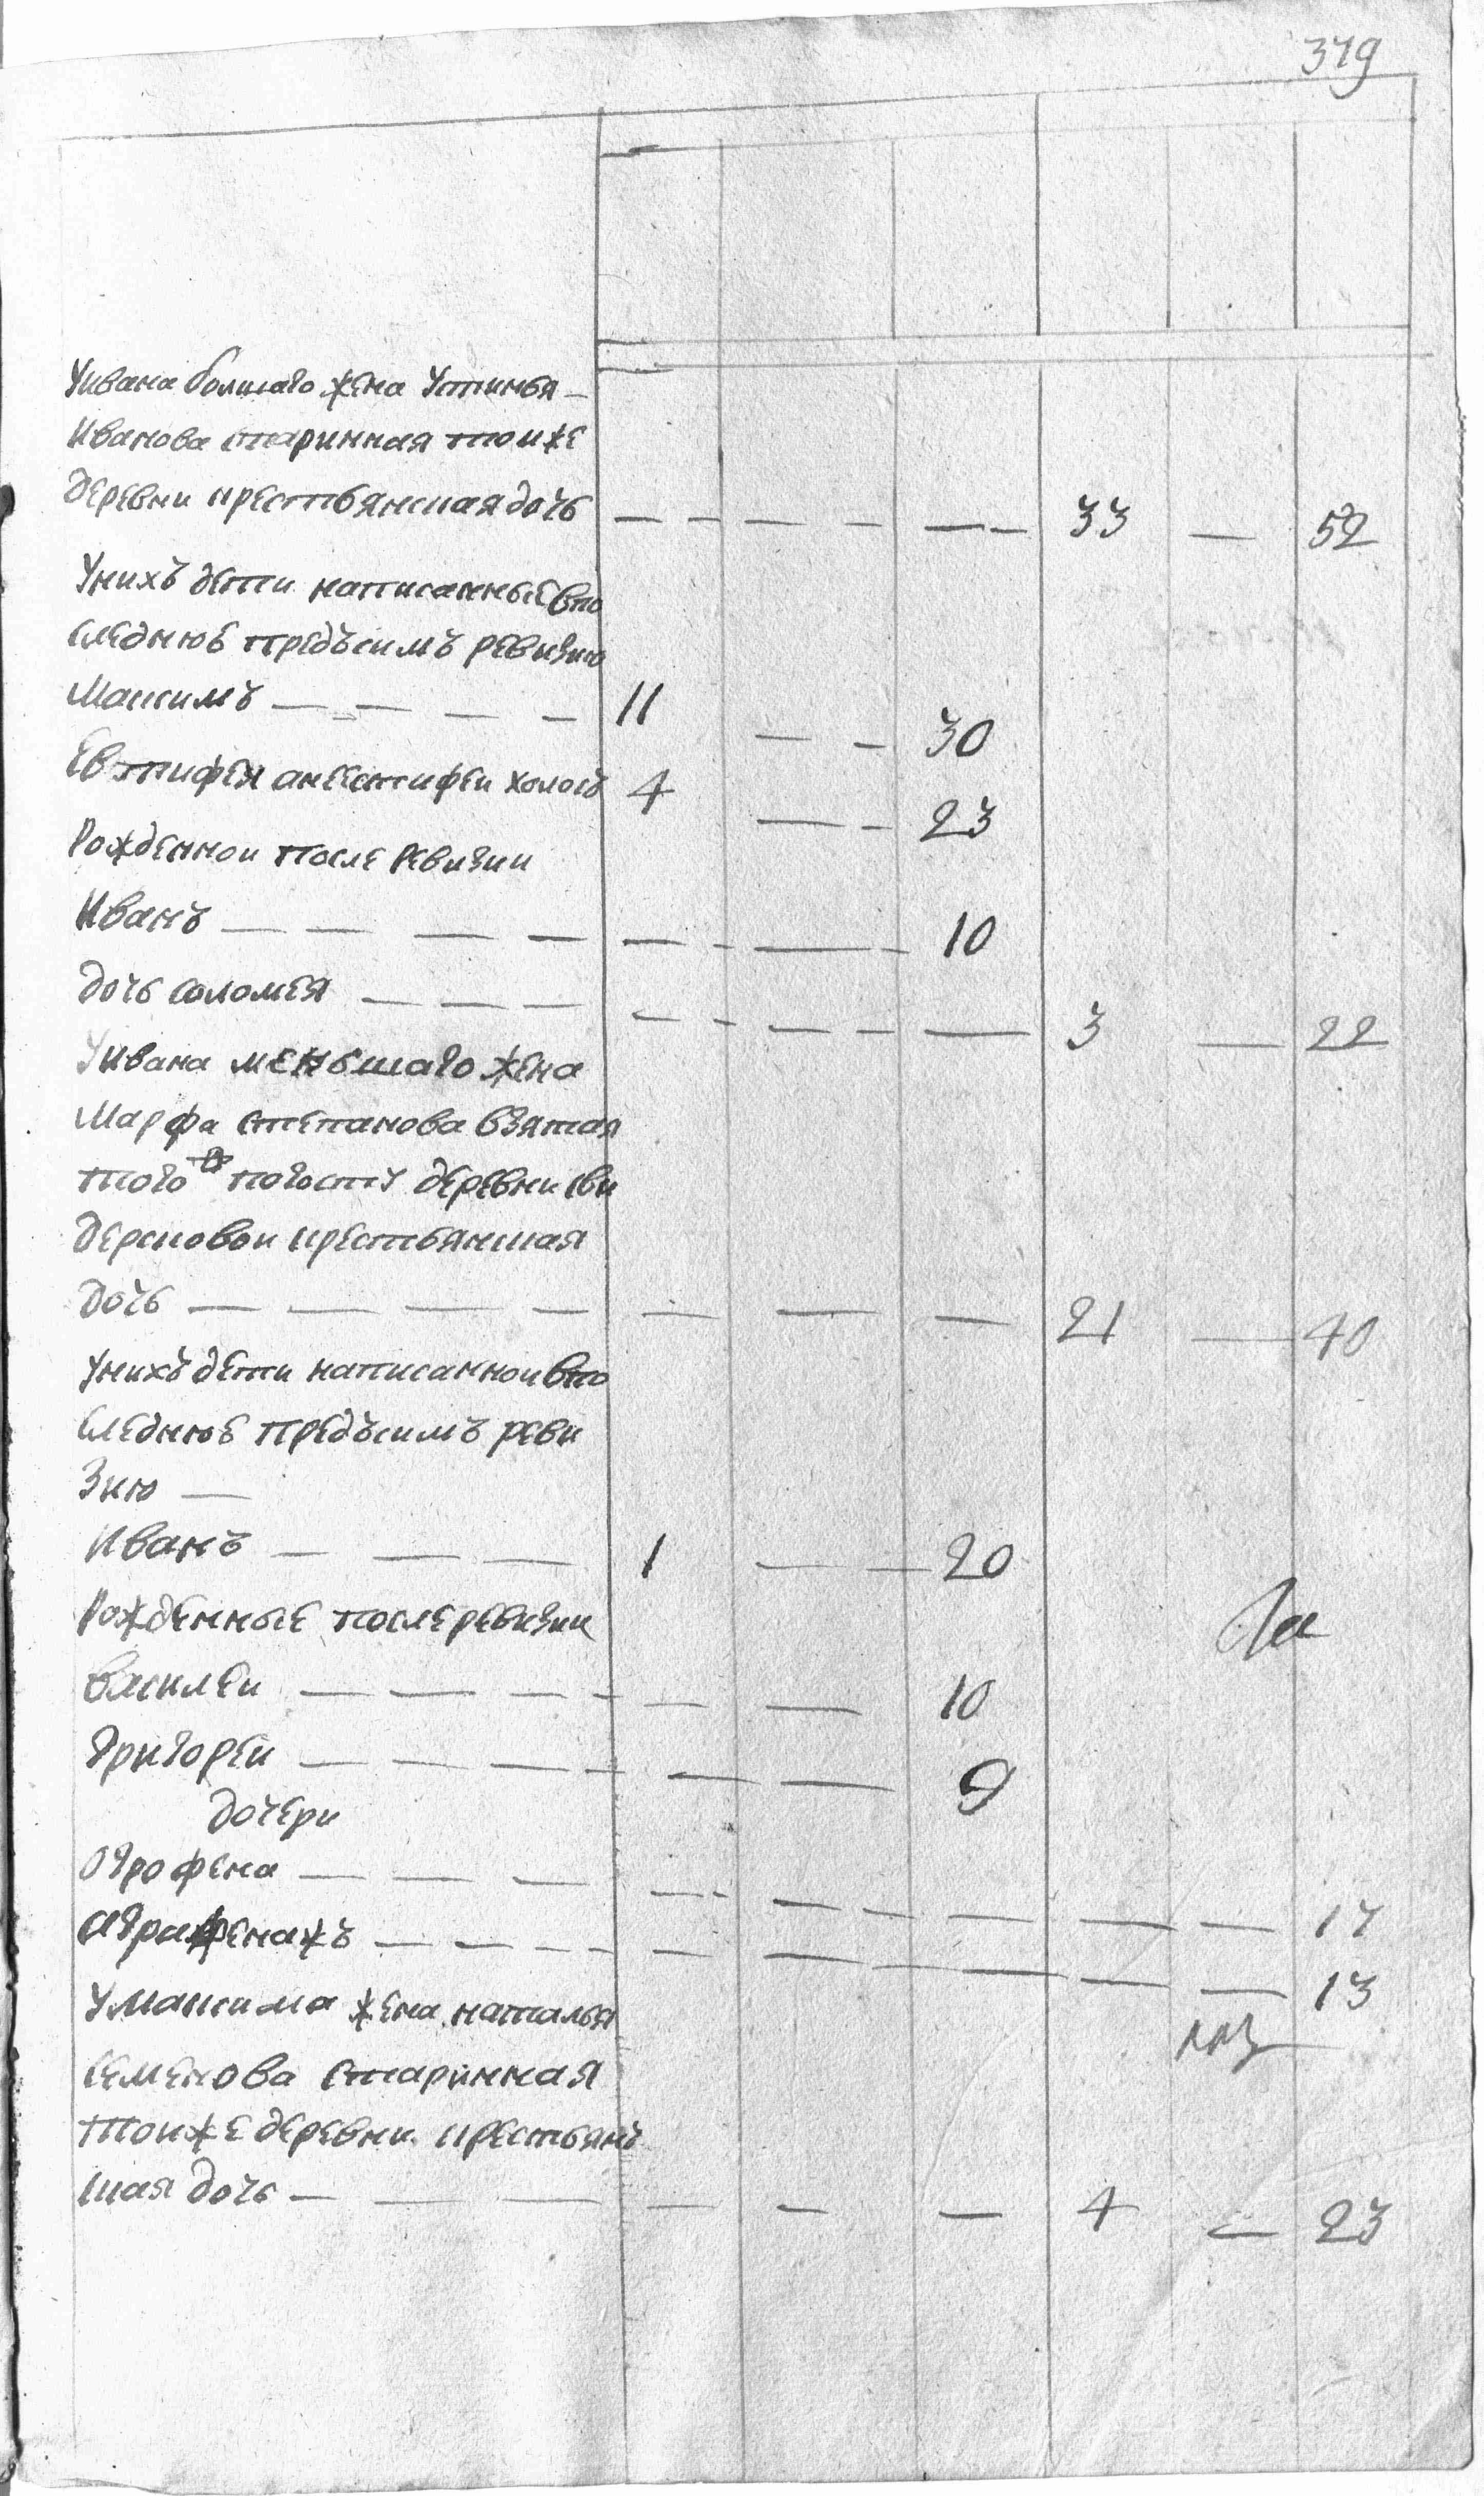 379
Уивана болшаго жена Устинья —
Иванова старинная тоиже
деревни крестьянская дочь — — — — — — 33 — 52
Унихъ дети написанные впо
следнюю предъсимъ ревизию
Максимъ — — — — 11 — — 30
Евтифеи анеевтифеи холостъ 4 — — 23
Рожденнои после ревизии
Иванъ — — — — — — — — 10
дочь соломея — — — — — — — — 3 — 22
Уивана меньшаго жена
Марфа степанова взятая
того погосту деревни сви
дерсковои крестьянская
дочь — — — — — — — 21 — 40
унихъ дети написаннои впо
следнюю предъсимъ реви
зию —
Иванъ — — — 1 — — 20
Рожденные послеревизии
Василеи — — — — — — 10
Григореи — — — — — — 9
дочери
Огрофена — — — — — — — — — — 17
Аграфенажъ — — — — — — — — — — — 13
Умаксима жена наталья
Семенова старинная
тоиже деревни крестьянъ
ская дочь — — — — — — 4 — 23